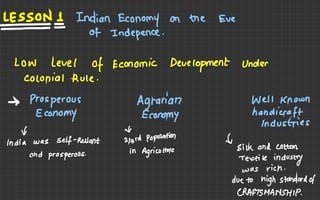 LESSON 1 Indian Economy on the Eve
of Indepence.
Low Level of Economic Development Under
Colonial Rule.
→ Prosperous
Economy
India was Self-Reliant
and prosperous.
Agrarian
Economy
2/3rd Population
in Agriculture
Well Known
handicraft
Industries
Silk and Cotton
Textile industry
was rich.
due to high standard of
CRAFTSMANSHIP.